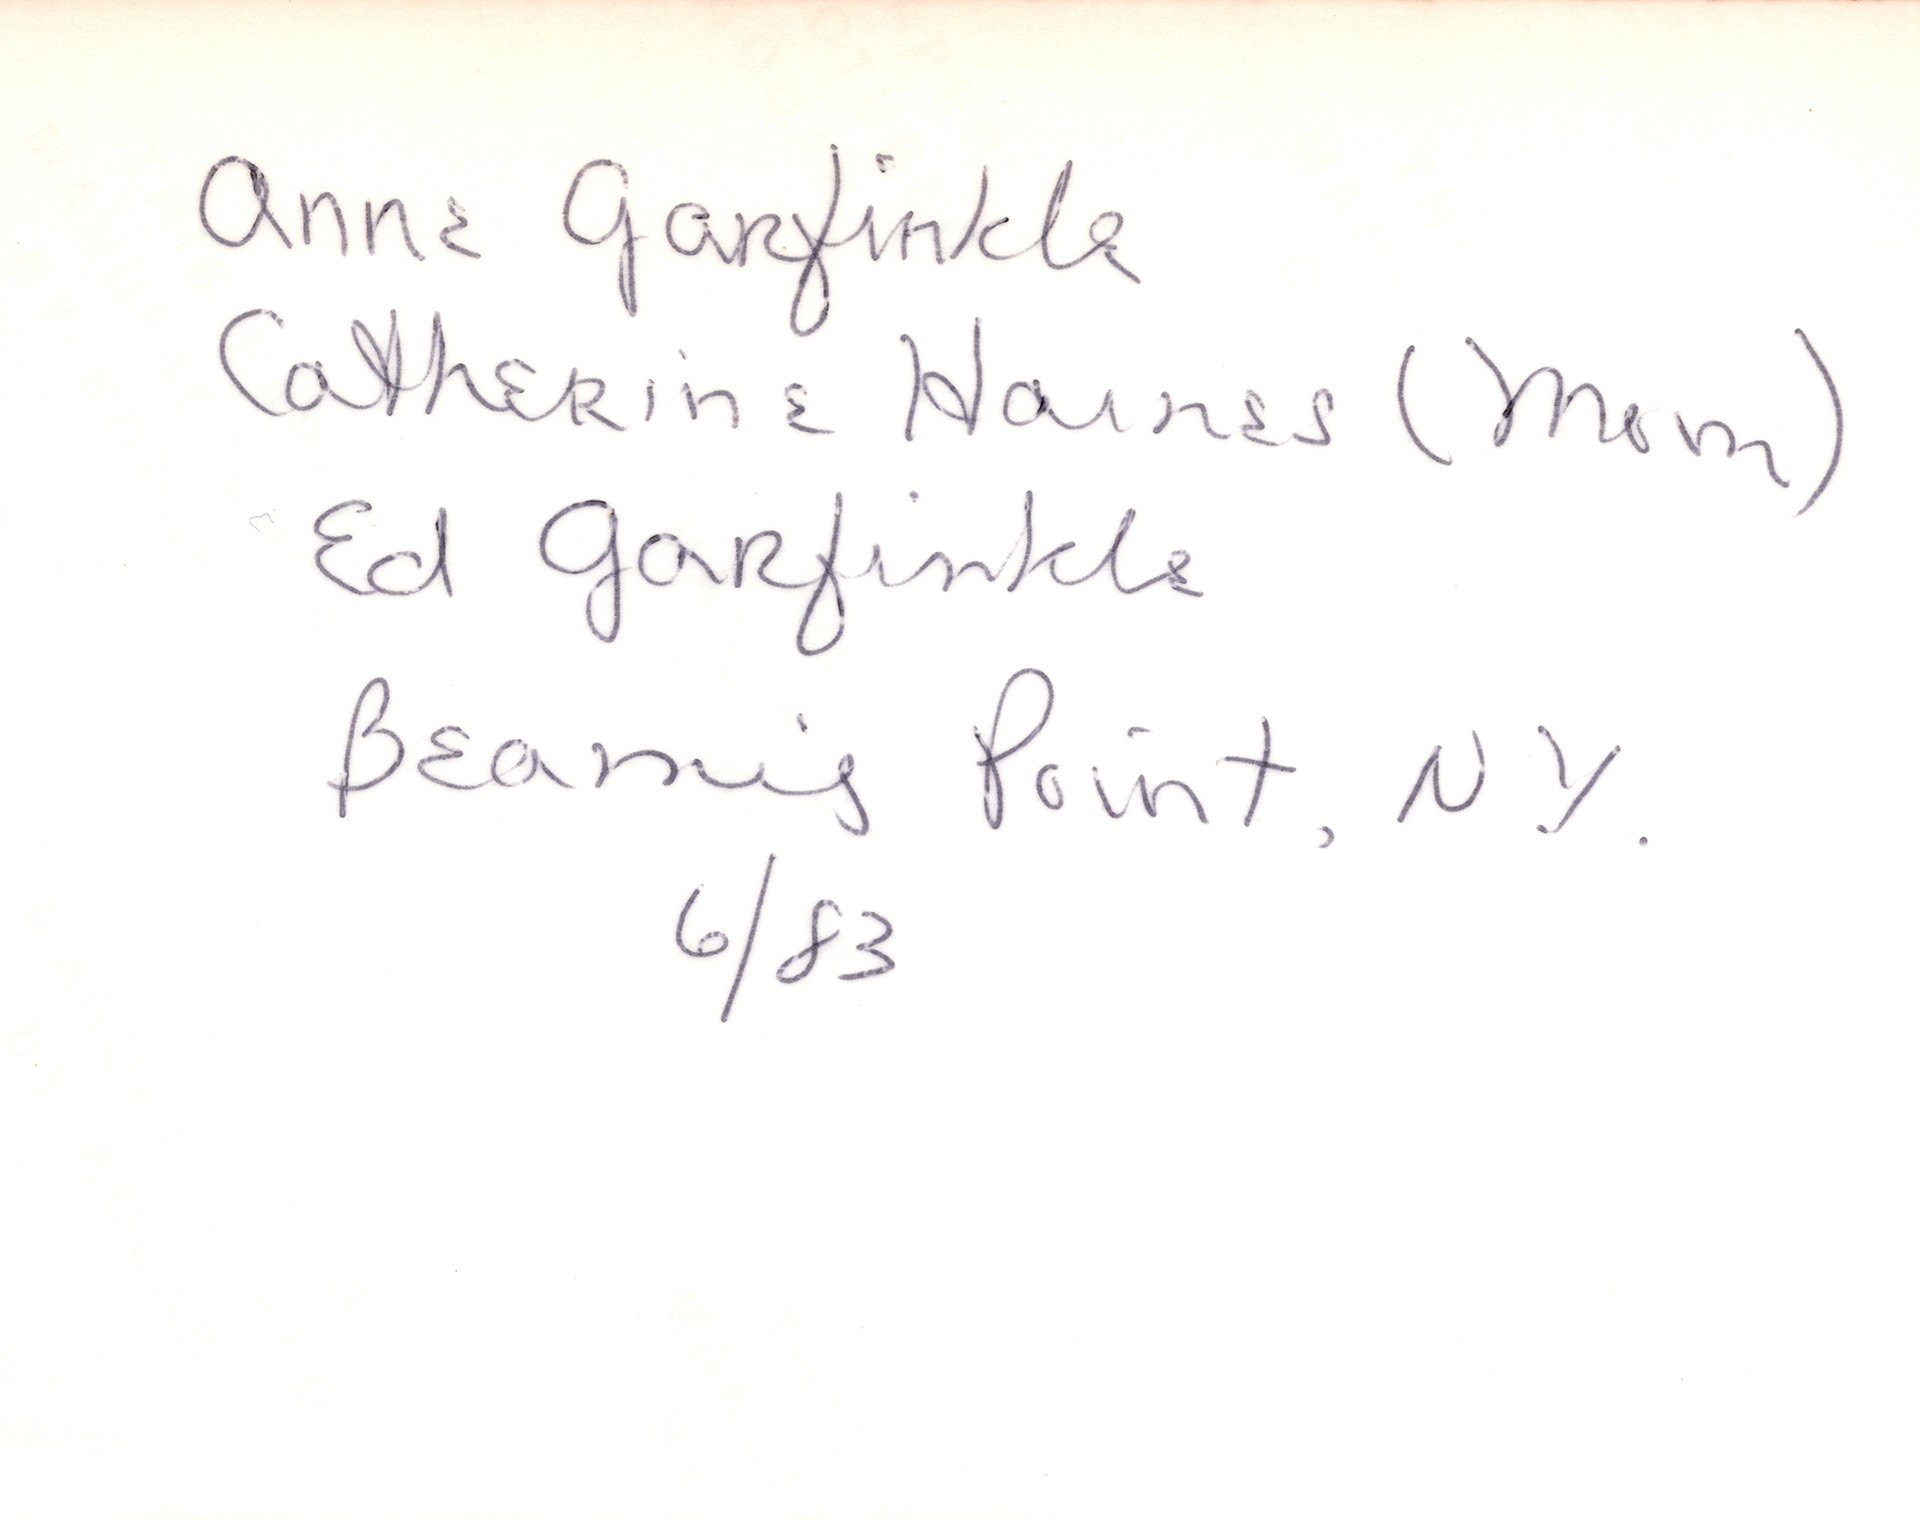 Anne Garfinkle
Catherine Haines (Mom)
Ed Garfinkle
Beamis Point, NY.
6/83